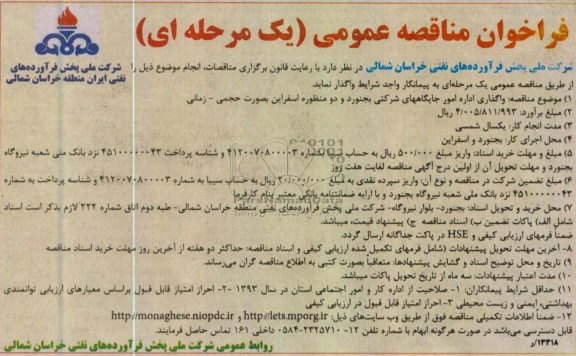 فراخوان مناقصه عمومی (یک مرحله ای)
شرکت ملی پخش فرآورده‌های
نفتی ایران منطقه خراسان شمالی
شرکت ملی پخش فرآورده‌های نفتی خراسان شمالی در نظر دارد با رعایت قانون برگزاری مناقصات، انجام موضوع ذیل را
از طریق مناقصه عمومی یک مرحله‌ای به پیمانکار واجد شرایط واگذار نماید.
۱) موضوع مناقصه: واگذاری اداره امور جایگاههای شرکتی بجنورد و دو منظوره اسفراین بصورت حجمی - زمانی
۲) مبلغ برآورد: ۴/۰۰۵/۸۱۱/۹۹۳ ریال
۳) مدت انجام کار: یکسال شمسی
۴) محل اجرای کار: بجنورد و اسفراین
۵) مبلغ و مهلت خرید اسناد: واریز مبلغ ۵۰۰/۰۰۰ ریال به حساب سیبا بشماره ۴۱۲۰۰۷۰۸۰۰۰۰۳ و شناسه پرداخت ۴۵۱۰۰۰۰۰۰۴۳ نزد بانک ملی شعبه نیروگاه
بجنورد و مهلت تحویل آن از اولین درج آگهی مناقصه لغایت هفت روز
۶) مبلغ تضمین شرکت در مناقصه و نوع آن: واریز سپرده نقدی به مبلغ ریال به حساب سیبا به شماره ۴۱۲۰۰۷۰۸۰۰۰۰۳ و شناسه پرداخت به شماره
۴۵۱۰۰۰۰۰۰۴۳ نزد بانک ملی شعبه نیروگاه بجنورد و یا ارایه ضمانتنامه بانکی معتبر بنام کارفرما
۷) محل خرید و تحویل اسناد: بجنورد- بلوار نیروگاه- شرکت ملی پخش فرآورده‌های نفتی منطقه خراسان شمالی- طبقه دوم اتاق شماره ۲۲۲ لازم بذکر است اسناد
شامل الف) پاکات تضمین ب) اسناد مناقصه ج) پیشنهاد قیمت، میباشد.
ضمناً فرمهای ارزیابی کیفی و HSE در پاکت جداگانه ارسال گردد.
۸- آخرین مهلت تحویل پیشنهادات (شامل فرمهای تکمیل شده ارزیابی کیفی و اسناد مناقصه: حداکثر دو هفته از آخرین روز مهلت خرید اسناد مناقصه
۹) تاریخ و محل توضیح اسناد و گشایش پیشنهادها: متعاقباً بصورت کتبی به اطلاع مناقصه گران می‌رساند.
۱۰) مدت اعتبار پیشنهادات: سه ماه از تاریخ تحویل پاکات میباشد.
۱۱) حداقل شرایط پیمانکاران: ۱- صلاحیت از اداره کار و امور اجتماعی استان در سال ۱۳۹۳ ۲- احراز امتیاز قابل قبول براساس معیارهای ارزیابی توانمندی
بهداشتی، ایمنی و زیست محیطی ۳- احراز امتیاز قابل قبول در ارزیابی کیفی
۱۲- ضمناً اطلاعات تکمیلی مناقصه فوق از طریق وب سایت‌های ذیل: http://iets.mporg.ir و http://monaghese.niopdc.ir
قابل دسترسی می‌باشد در صورت هرگونه ابهام با شماره تلفن ۱۲-۲۲۲۵۷۱۰-۰۵۸۴ داخلی ۱۶۱ تماس حاصل فرمایند.
۱۳۳۱۸/د
روابط عمومی شرکت ملی پخش فرآورده‌های نفتی خراسان شمالی